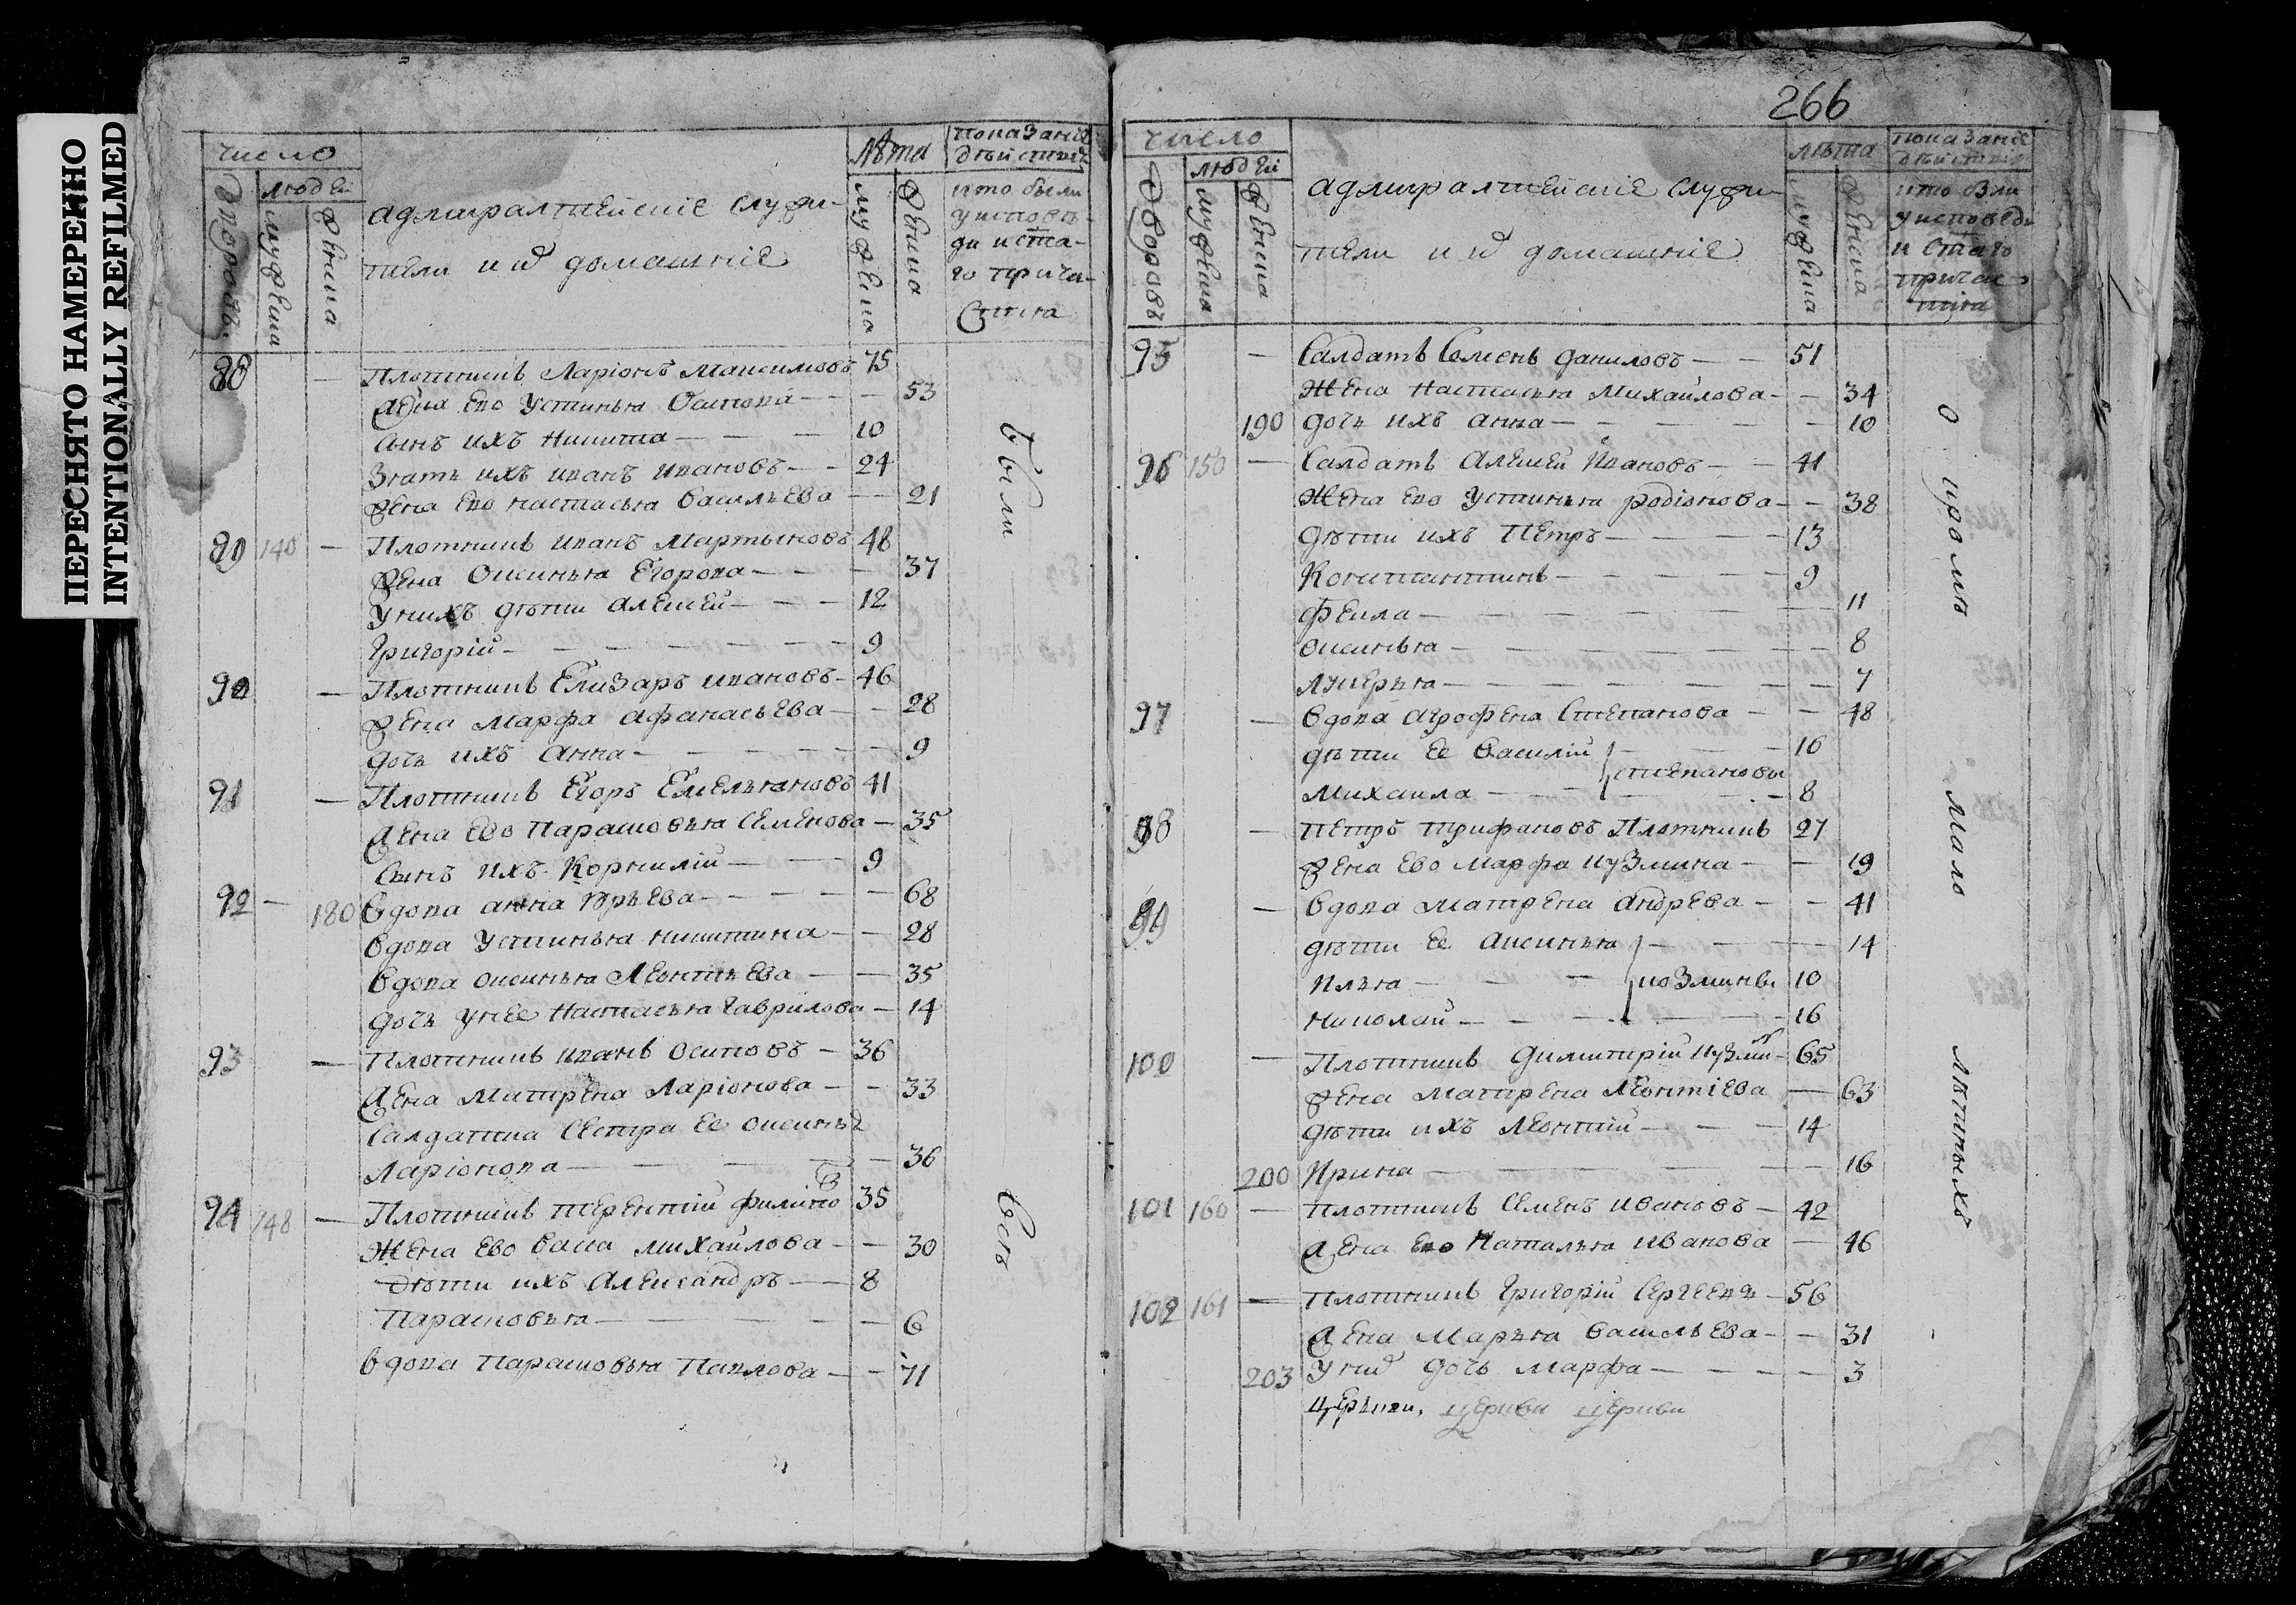 ПЕРЕСНЯТО НАМЕРЕННО
INTENTIONALLY REFILMED
число
людей
дворовъ
мужеска
женска
адмиралтейскіе служи-
тели и их домашніе
лѣта
мужеска
женска
показаніе
дѣйствія
кто были
у исповѣ-
ди и свта-
го прича-
стія
88 — Плотникъ Ларіонъ Максимовъ 75
жена ево Устинья Осипова — — 53
сынъ ихъ Никита — — — 10
Зъять ихъ иванъ ивановъ — — 24
жена ево настасья василѣева — — 21
89 140 — Плотникъ иванъ Мартыновъ 48
жена Оксинья Егорова — — — 37
У нихъ дѣти алексей — — — 12
Григорій — — — — — — 9
90 — Плотникъ Елизаръ ивановъ — 46
жена марфа афанасьева — — 28
дочь ихъ анна — — — — — 9
91 — Плотникъ Егоръ Емельяновъ 41
жена ево парасковья семенова — 35
Сынъ ихъ Корнилій — — — 9
92 — 180 вдова анна юрьева — — — — — 68
вдова Устинья никитина — — 28
вдова оксинья Леонтьева — — 35
дочь у нее настасья гаврилова — 14
93 — Плотникъ иванъ осиповъ — 36
жена Матрена Ларіонова — — 33
Салдатка сестра ее оксинья
Ларіонова — — — — — — 36
94 148 — Плотникъ терентій филипо в 35
Жена ево васа михайлова — — 30
Дѣти ихъ Александръ — — 8
Парасковья — — — — — 6
вдова Парасковья Павлова — — 71
были
всѣ
266
число
людей
дворовъ
мужеска
женска
адмиралтейскіе служи
тели и их домашніе
лѣта
мужеска
женска
показаніе
дѣйствія
кто были
у исповеди
и стаго
причас
тія
95 — Салдатъ Семенъ даниловъ — — 51
Жена настасья михайлова — — 34
190 дочь ихъ анна — — — — — 10
96 150 — Салдатъ алексей ивановъ — — 41
Жена ево Устинья родіонова — — 38
дѣти ихъ Петръ — — — — 13
Константинъ — — — — — 9
фекла — — — — — — — 11
оксинья — — — — — — — 8
Лукерья — — — — — — — 7
97 — вдова агрофена степанова — — 48
дѣти ее василій — — — 16
степановы
михаила — — — — 8
98 — петръ трифановъ Плотникъ 27
жена ево марфа кузмина — — 19
99 — вдова матрена андрева — — 41
дѣти ее аксинья — — — 14
илья — — — козмины 10
николай — — — — — 16
100 — Плотникъ димитрій кузмин — 65
жена матрена Леонтіева — 63
дѣти ихъ Леонтій — — — 14
200 Ирина — — — — — — 16
101 160 — плотникъ семенъ ивановъ — 42
жена ево наталья иванова — 46
102 161 — плотникъ григорій сергеевъ — 56
жена марья васильева — — 31
203 У них дочь марфа — — — — 3
церкви. церкви церкви
о кромѣ
мало
лѣтныхъ